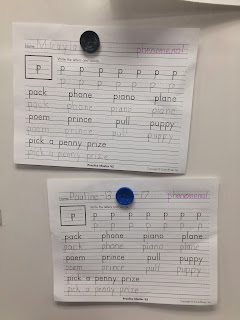 Name phenomenal
Write the letters and words.
p p p p p p p p p
pack phone piano plane
pack phone piano plane
poem prince pull puppy
poem prince pull puppy
pick a penny prize
pick a penny prize
Practice Master 92
Name Pauline 17 phenomenal
Write the letters and words.
p p p p p p p p p
pack phone piano plane
pack phone piano plane
poem prince pull puppy
poem prince pull puppy
pick a penny prize
pick a penny prize